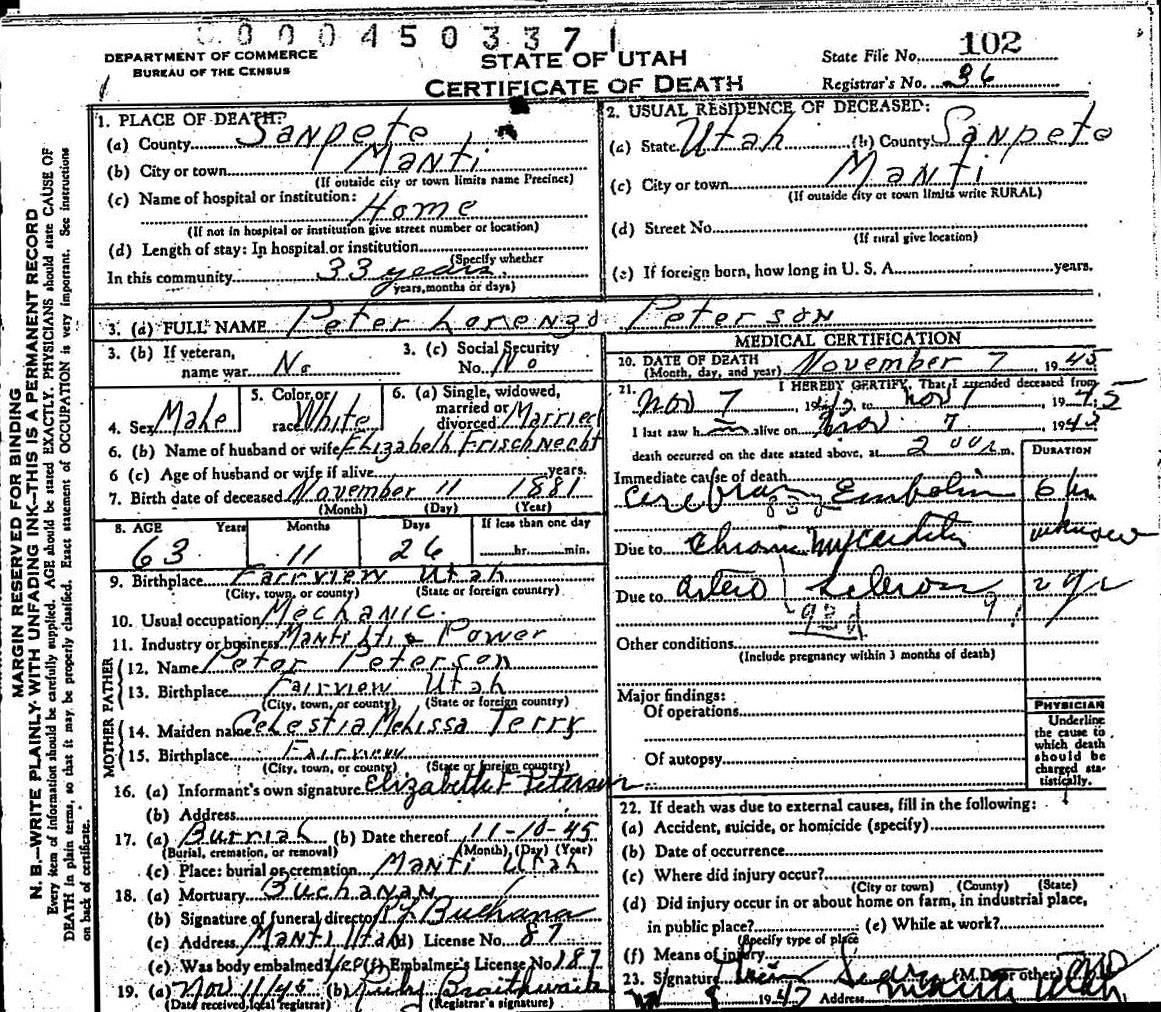 0000450337 1
DEPARTMENT OF COMMERCE
BUREAU OF THE CENSUS
STATE OF UTAH
CERTIFICATE OF DEATH
State File No. 102
Registrar's No. 36
MARGIN RESERVED FOR BINDING
N. B.—WRITE PLAINLY WITH UNFADING INK—THIS IS A PERMANENT RECORD
Every item of information should be carefully supplied. AGE should be stated EXACTLY. PHYSICIANS should state CAUSE OF
DEATH in plain terms, so that it may be properly classified. Exact statement of OCCUPATION is very important. See instructions
on back of certificate.
1. PLACE OF DEATH?
(a) County Sanpete
(b) City or town Manti
(If outside city or town limits name Precinct)
(c) Name of hospital or institution:
Home
(If not in hospital or institution give street number or location)
(d) Length of stay: In hospital or institution
(Specify whether
In this community 33 years.
years, months or days)
2. USUAL RESIDENCE OF DECEASED:
(a) State Utah (b) County Sanpete
(c) City or town Manti
(If outside city or town limits write RURAL)
(d) Street No.
(If rural give location)
(e) If foreign born, how long in U. S. A. years.
3. (a) FULL NAME Peter Lorenzo Peterson
3. (b) If veteran, name war No
3. (c) Social Security No. No
4. Sex Male
5. Color or race White
6. (a) Single, widowed, married or divorced Married
6. (b) Name of husband or wife Elizabeth Frischknecht
6 (c) Age of husband or wife if alive years.
7. Birth date of deceased November 11 1881
(Month) (Day) (Year)
8. AGE Years Months Days If less than one day
63 11 26 hr. min.
9. Birthplace Fairview Utah
(City, town, or county) (State or foreign country)
10. Usual occupation Mechanic.
11. Industry or business Manti Lt & Power
FATHER
12. Name Peter Peterson
13. Birthplace Fairview Utah
(City, town, or county) (State or foreign country)
MOTHER
14. Maiden name Celestia Melissa Terry
15. Birthplace Fairview
(City, town, or county) (State or foreign country)
16. (a) Informant's own signature Elizabeth F Peterson
(b) Address
17. (a) Burriah (b) Date thereof 11-10-45
(Burial, cremation, or removal) (Month) (Day) (Year)
(c) Place: burial or cremation Manti Utah
18. (a) Mortuary Buchanan
(b) Signature of funeral director Buchanan
(c) Address Manti Utah (d) License No. 87
(e) Was body embalmed? Yes (f) Embalmer's License No. 187
19. (a) Nov 11/45 (b) Ruby Braithwaite
(Date received local registrar) (Registrar's signature)
MEDICAL CERTIFICATION
10. DATE OF DEATH November 7, 1945
(Month, day, and year)
21. I HEREBY CERTIFY, That I attended deceased from
Nov 7, 1945 to Nov 7 1945
I last saw h alive on Nov. 7 1945
death occurred on the date stated above, at 2 m.
DURATION
Immediate cause of death
Cerebral Embolim 6 hr
Due to Chronic Myocarditis unknown
Due to Arterio Sclerosis 2 yr
93d
Other conditions
(Include pregnancy within 3 months of death)
Major findings:
Of operations
Of autopsy
PHYSICIAN
Underline
the cause to
which death
should be
charged sta-
tistically.
22. If death was due to external causes, fill in the following:
(a) Accident, suicide, or homicide (specify)
(b) Date of occurrence
(c) Where did injury occur?
(City or town) (County) (State)
(d) Did injury occur in or about home on farm, in industrial place,
in public place? (e) While at work?
(Specify type of place
(f) Means of injury
23. Signature (M.D. or other) MD
Address Manti Utah